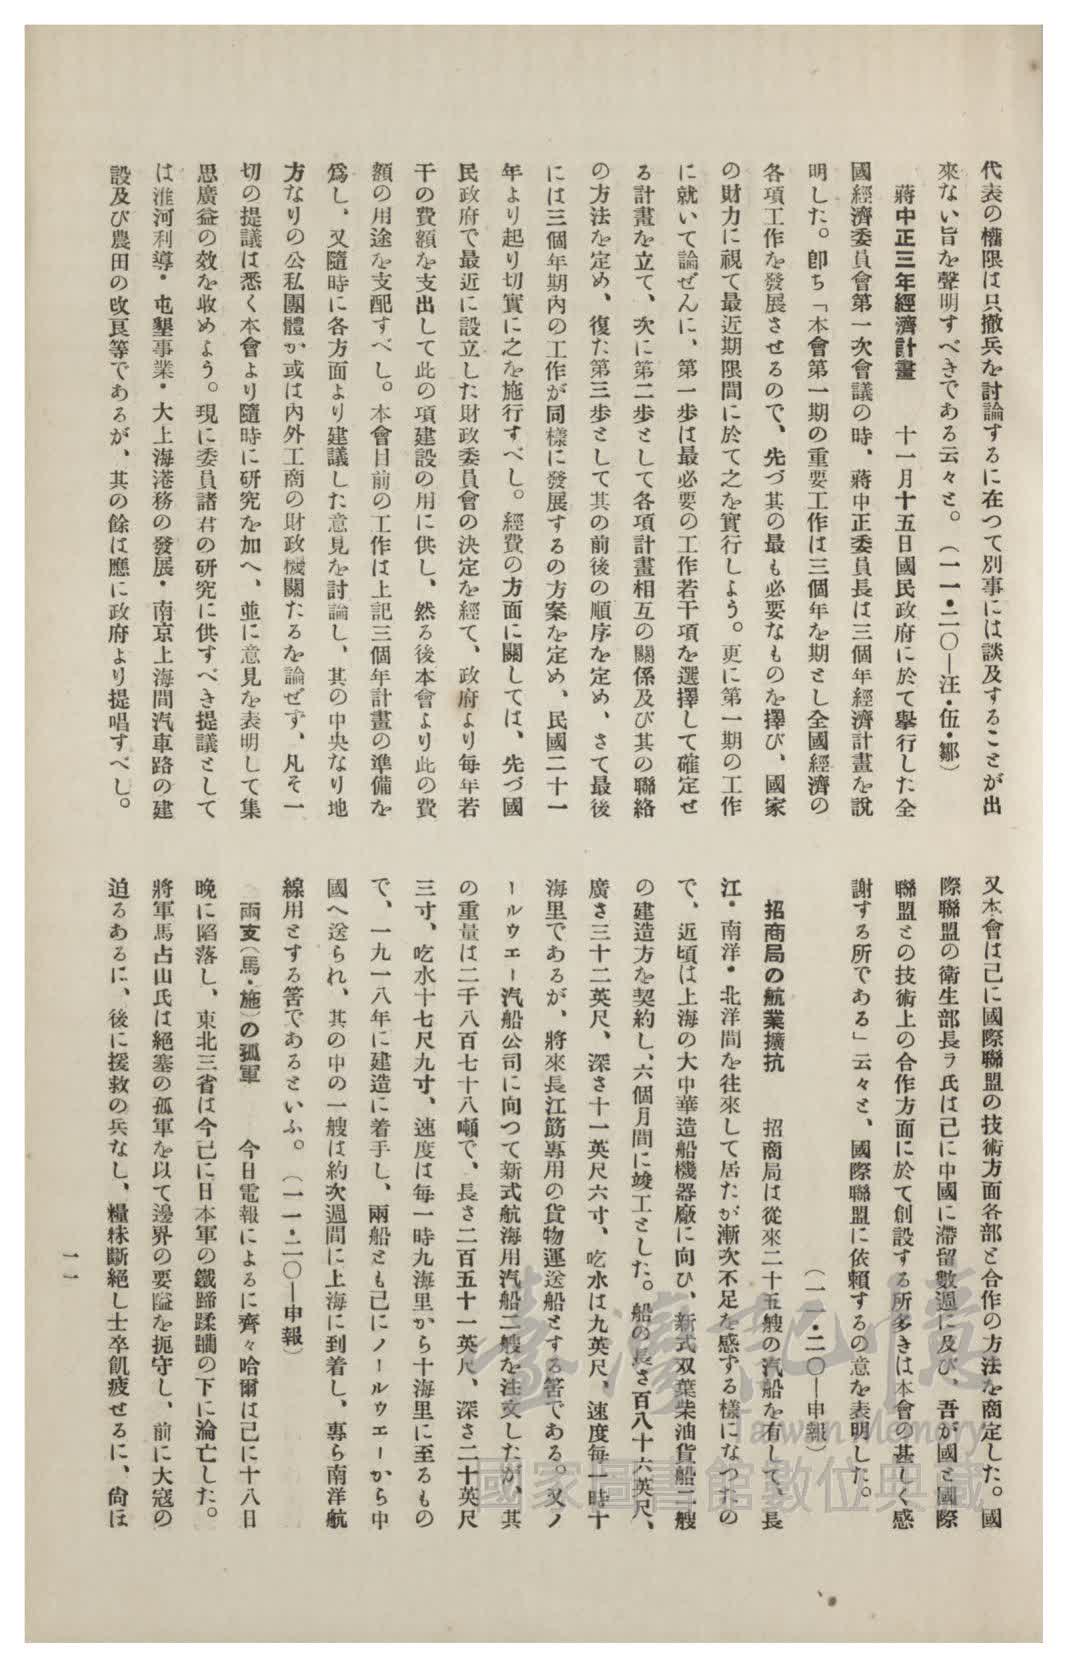 代表の權限は只撤兵を討論するに在つて別事には談及することが出
來ない旨を聲明すべきである云々と。(一一・二〇—汪・伍・鄒)
蔣中正三年經濟計畫　十一月十五日國民政府に於て擧行した全
國經濟委員會第一次會議の時、蔣中正委員長は三個年經濟計畫を說
明した。卽ち「本會第一期の重要工作は三個年を期とし全國經濟の
各項工作を發展させるので、先づ其の最も必要なものを擇び、國家
の財力に視て最近期限間に於て之を實行しよう。更に第一期の工作
に就いて論ぜんに、第一步は最必要の工作若干項を選擇して確定せ
る計畫を立て、次に第二步として各項計畫相互の關係及び其の聯絡
の方法を定め、復た第三步として其の前後の順序を定め、さて最後
には三個年期內の工作が同樣に發展するの方案を定め、民國二十一
年より起り切實に之を施行すべし。經費の方面に關しては、先づ國
民政府で最近に設立した財政委員會の決定を經て、政府より每年若
干の費額を支出して此の項建設の用に供し、然る後本會より此の費
額の用途を支配すべし。本會目前の工作は上記三個年計畫の準備を
爲し、又隨時に各方面より建議した意見を討論し、其の中央なり地
方なりの公私團體か或は內外工商の財政機關たるを論ぜず、凡そ一
切の提議は悉く本會より隨時に研究を加へ、並に意見を表明して集
思廣益の效を收めよう。現に委員諸君の研究に供すべき提議として
は淮河利導・屯墾事業・大上海港務の發展・南京上海間汽車路の建
設及び農田の改良等であるが、其の餘は應に政府より提唱すべし。
又本會は已に國際聯盟の技術方面各部と合作の方法を商定した。國
際聯盟の衛生部長ラ氏は已に中國に滯留數週に及び、吾が國と國際
聯盟との技術上の合作方面に於て創設する所多きは本會の甚しく感
謝する所である」云々と、國際聯盟に依賴するの意を表明した。
(一一・二〇—申報)
招商局の航業擴抗　招商局は從來二十五艘の汽船を有して、長
江・南洋・北洋間を往來して居たが漸次不足を感ずる樣になつたの
で、近頃は上海の大中華造船機器廠に向ひ、新式双葉柴油貨船二艘
の建造方を契約し、六個月間に竣工とした。船の長さ百八十六英尺、
廣さ三十二英尺、深さ十一英尺六寸、吃水は九英尺、速度每一時十
海里であるが、將來長江筋專用の貨物運送船とする筈である。又ノ
ールウェー汽船公司に向つて新式航海用汽船二艘を注文したが、其
の重量は二千八百七十八噸で、長さ二百五十一英尺、深さ二十英尺
三寸、吃水十七尺九寸、速度は每一時九海里から十海里に至るもの
で、一九一八年に建造に着手し、兩船とも已にノールウエーから中
國へ送られ、其の中の一艘は約次週間に上海に到着し、專ら南洋航
線用とする筈であるといふ。(一一・二〇—申報)
兩支(馬・施)の孤軍　今日電報によるに齊々哈爾は已に十八日
晚に陷落し、東北三省は今已に日本軍の鐵蹄蹂躙の下に淪亡した。
將軍馬占山氏は絕塞の孤軍を以て邊界の要隘を扼守し、前に大寇の
迫るあるに、後に援救の兵なし、糧秣斷絕し士卒飢疲せるに、尙ほ
一一
臺灣記憶
Taiwan Memory
國家圖書館數位典藏